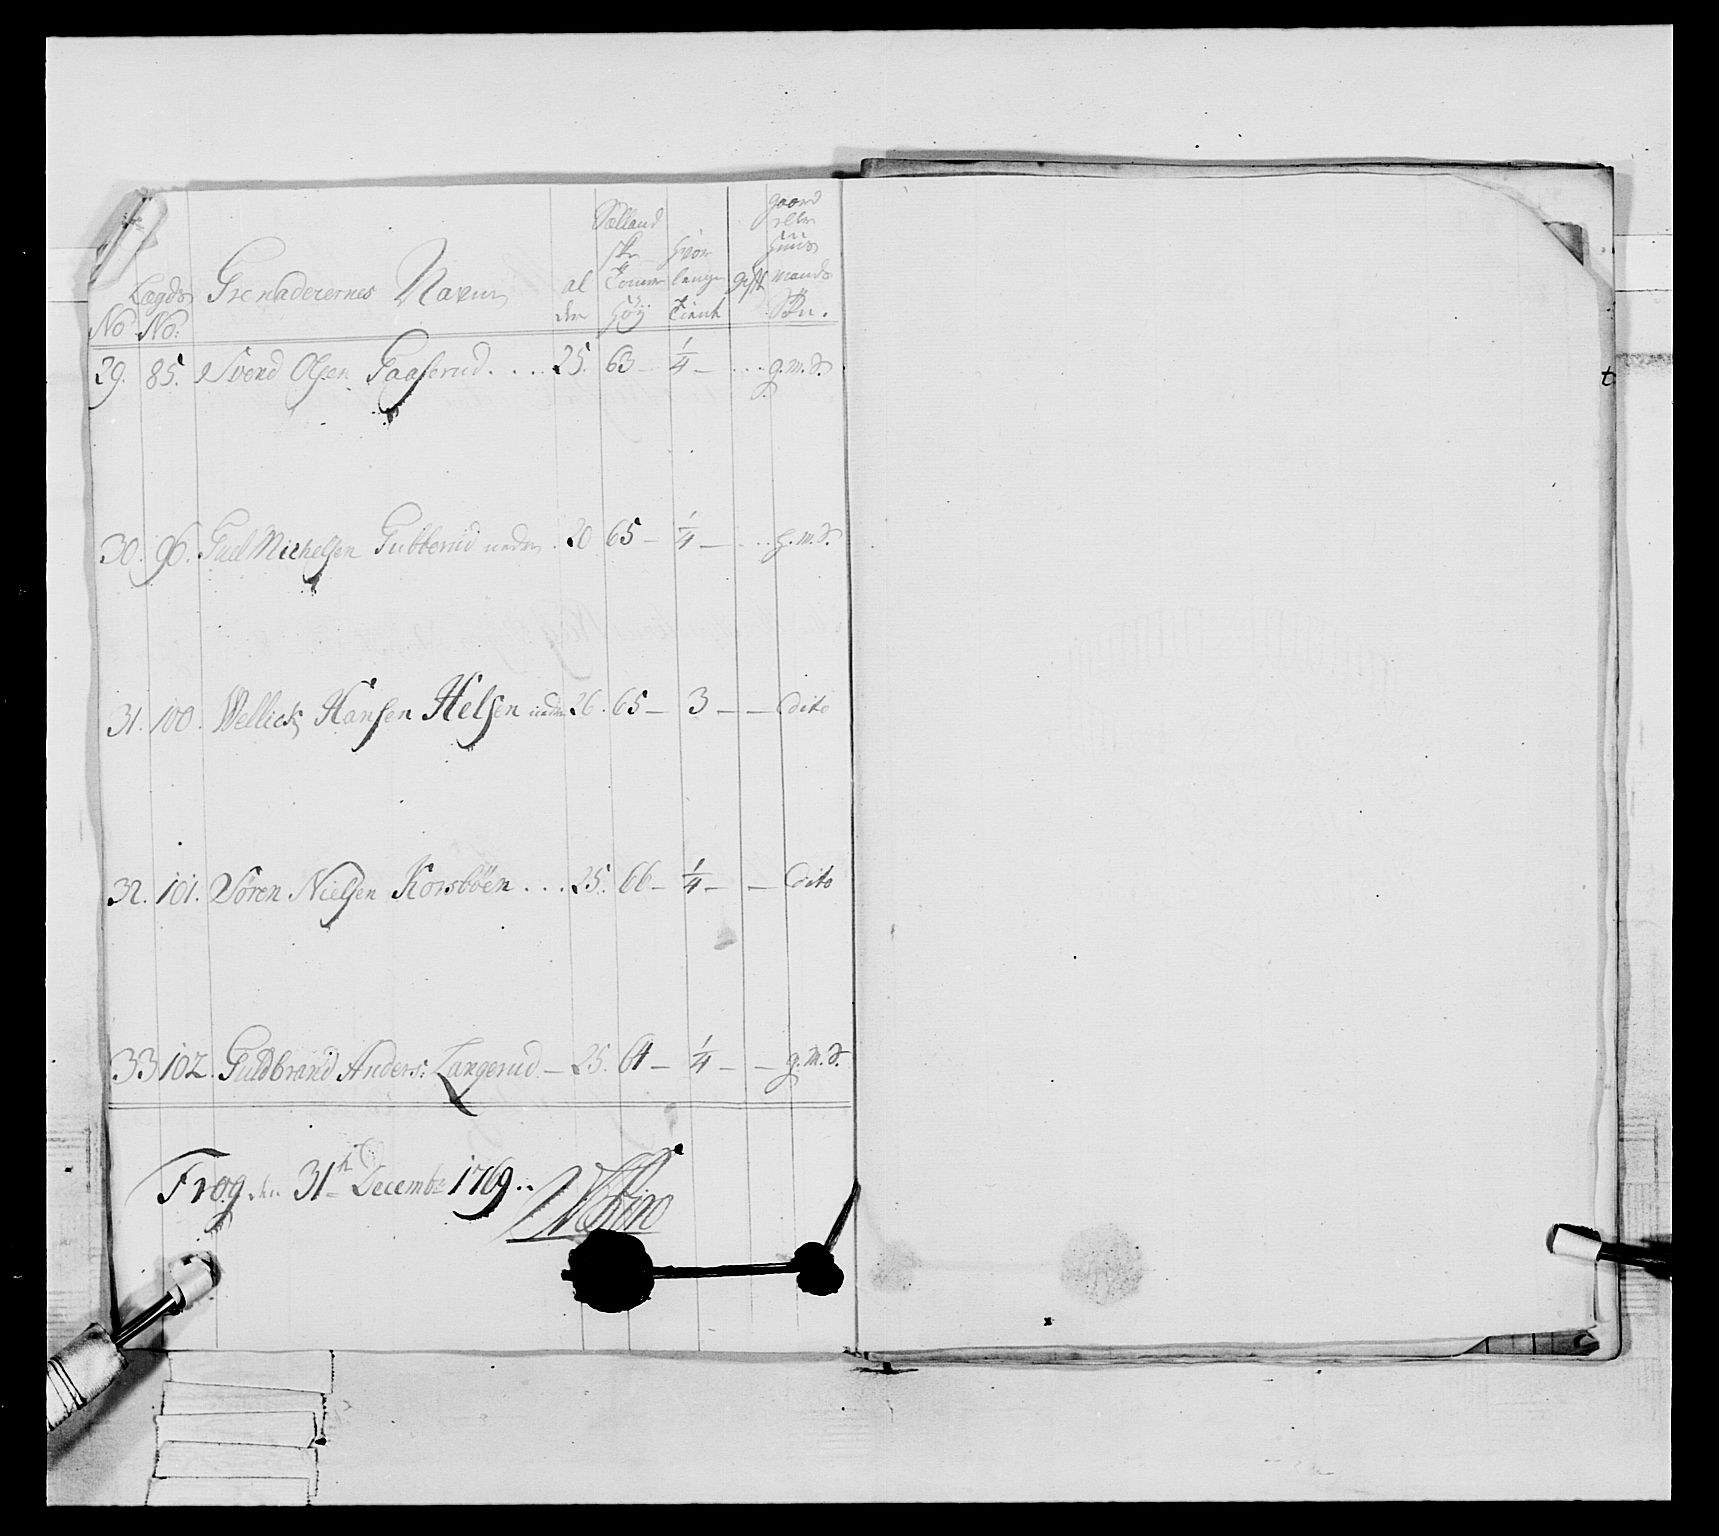 No Lægds No: Grenaderernes Navne alder Sællandske Tommer höÿ hvor lenge Tient gift gaard eller huus mands Sön.
29. 85. Svend Olsen Gaaserud.... 25. 63 — 1/4 — ... g.m.S.
30. 96. Michelsen Gubberud neder. 20 65 — 1/4 — ... h.m.S.
31. 100. Wellick Hansen Helgen neder 26. 65 — 3 — — Dito
32. 101. Sören Nielsen Korsböen ... 25. 66 — 1/4 — — Dito
33 102. Guldbrand Anders: Langerud — 25. 64 — 1/4 — — g.m.S.
Frog den 31te Decembr 1769..